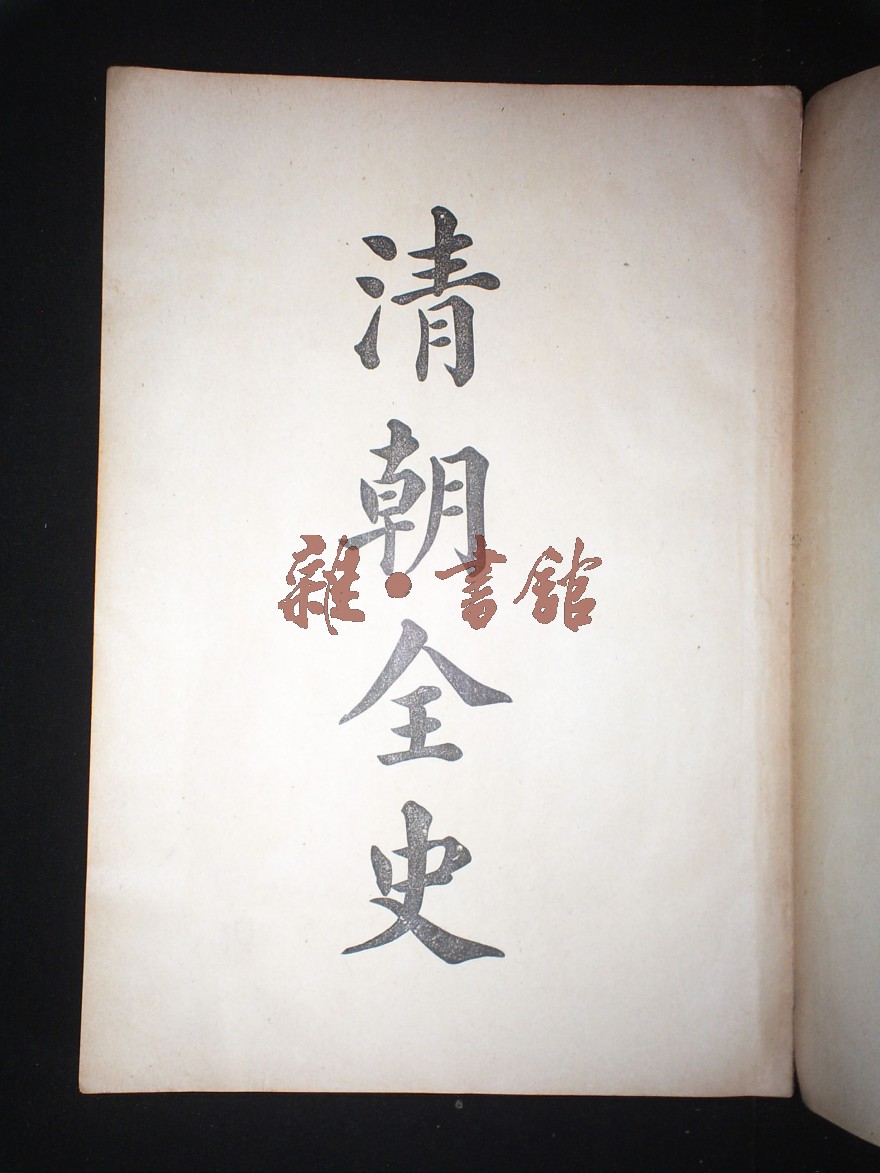 清朝全史
雜·書館